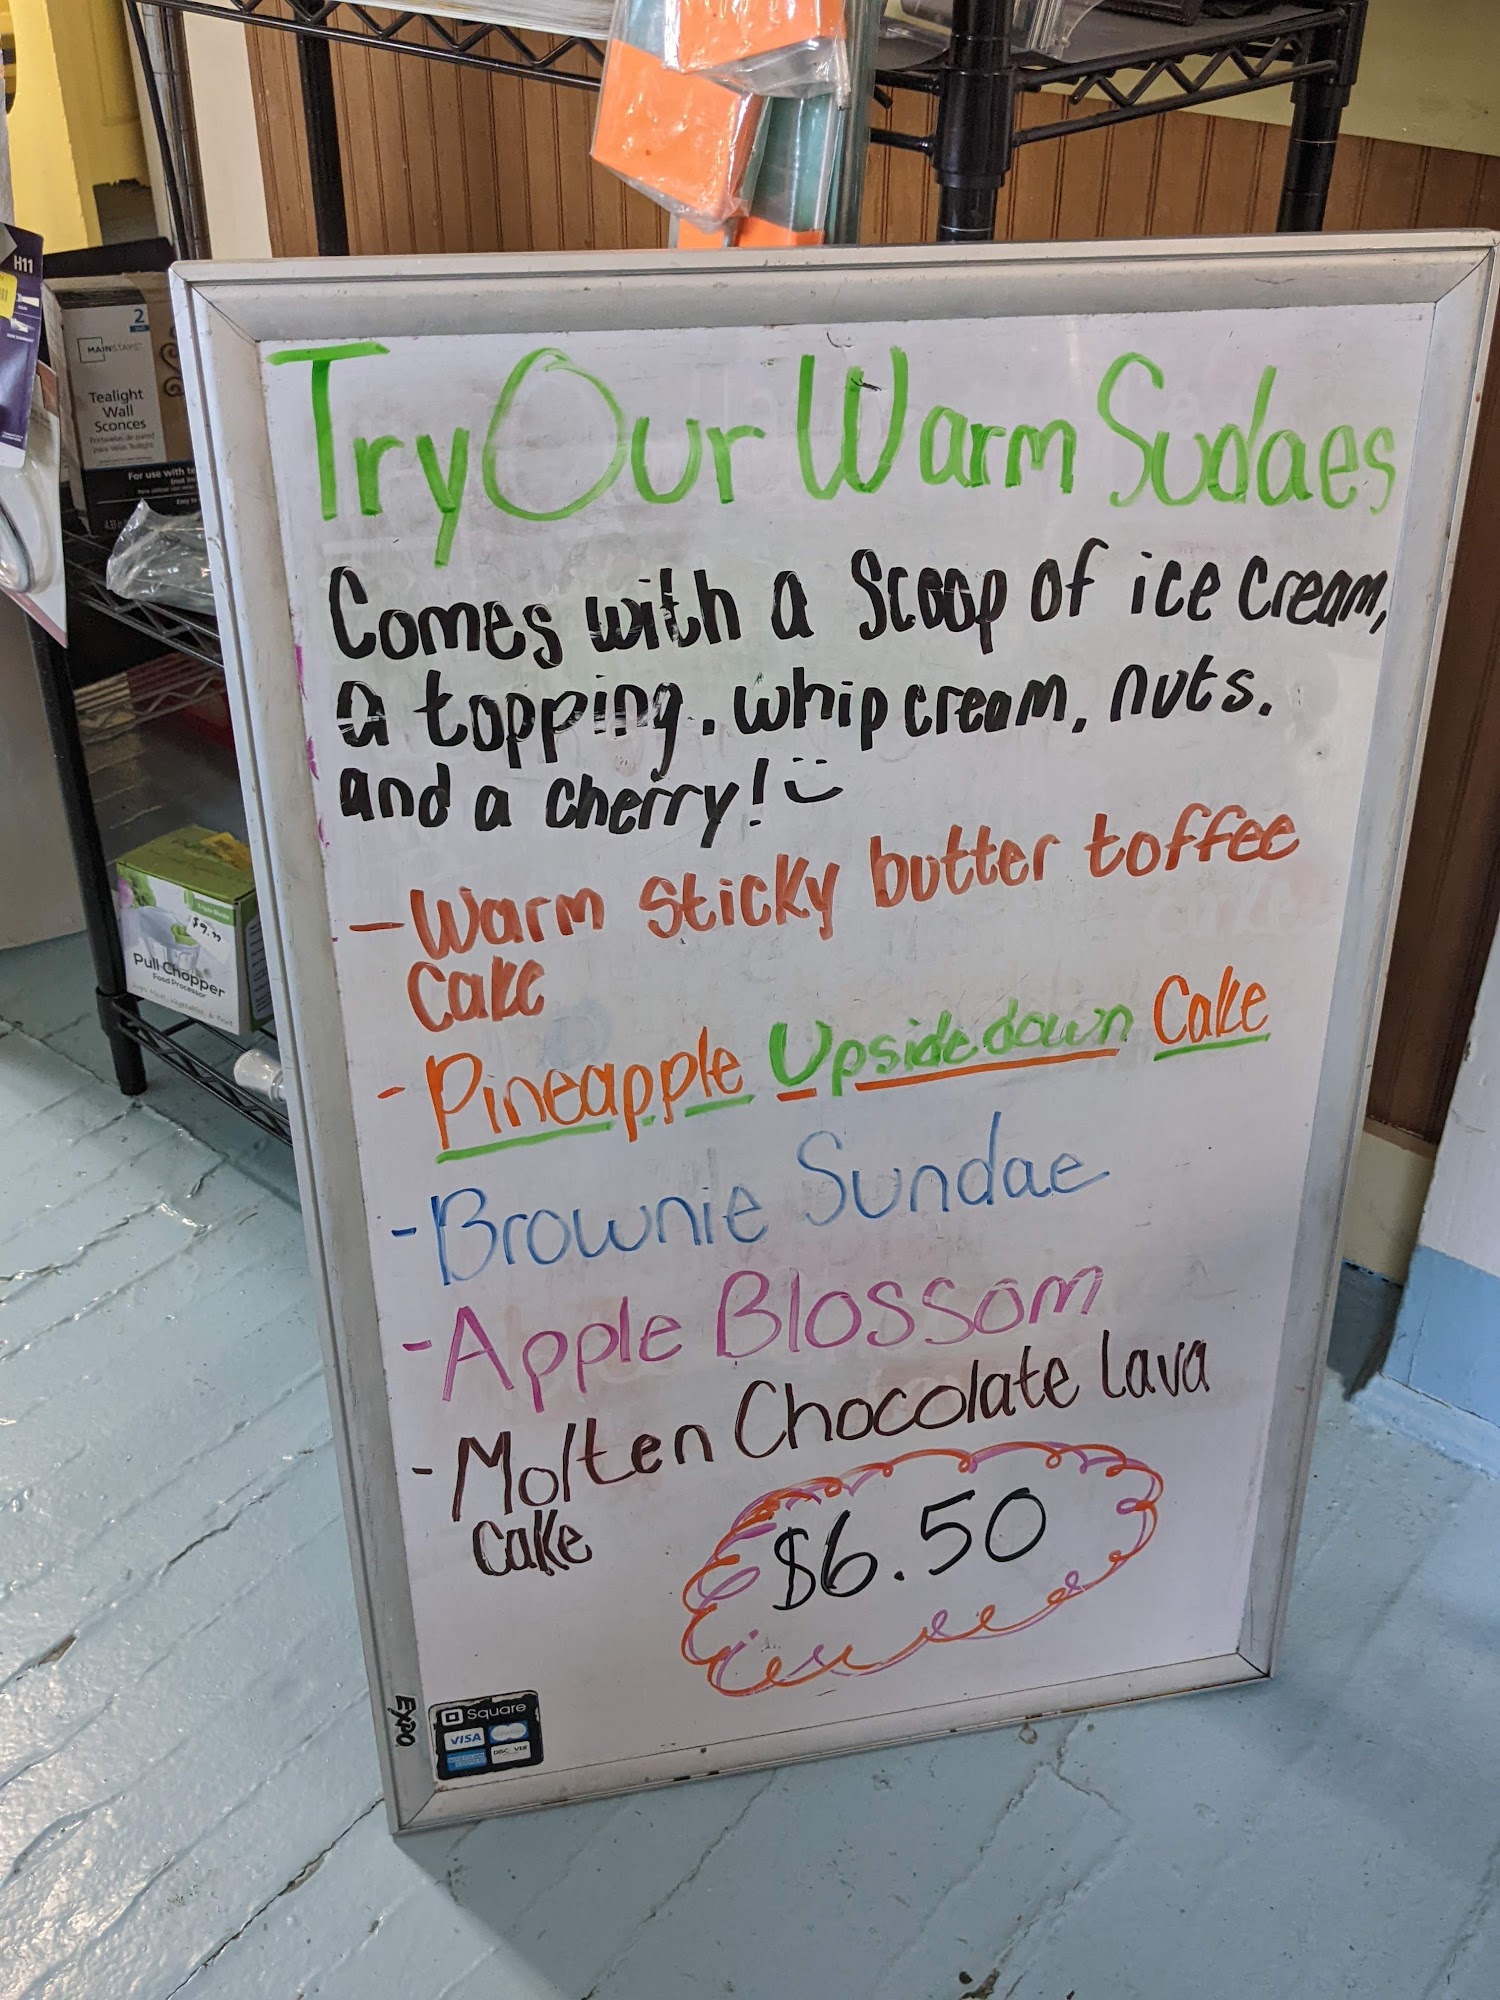 H11
2
MAINSTAYS
Tealight
Wall
Sconces
For use with
Try Our Warm Sudaes
Comes with a Scoop of ice cream,
a topping. whip cream, nuts.
and a cherry! :)
- Warm sticky butter toffee
Cake
- Pineapple Upside down Cake
- Brownie Sundae
- Apple Blossom
- Molten Chocolate Lava
Cake
$6.50
$9.99
Pull Chopper
Food Processor
EXPO
Square
VISA
DISCOVER